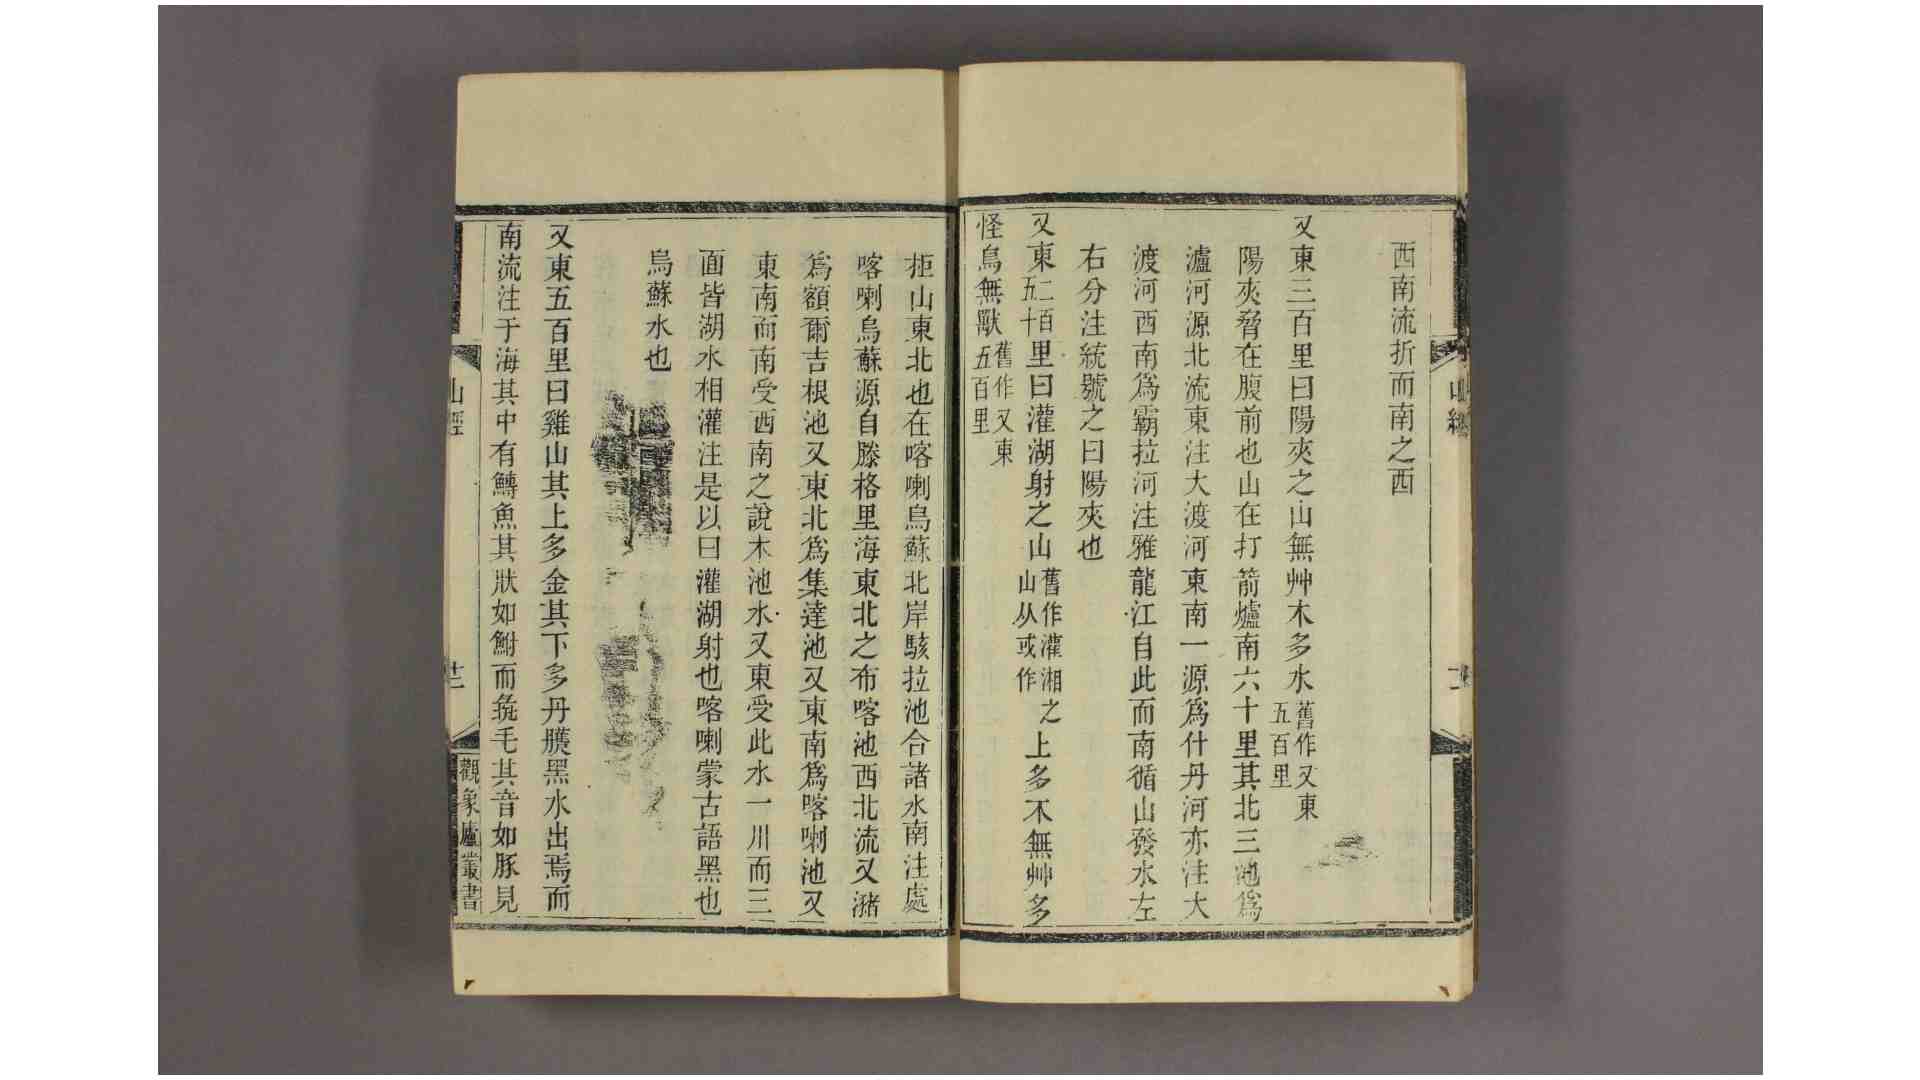 山經
西南流折而南之西
又東三百里曰陽夾之山無艸木多水舊作又東五百里
陽夾脅在腹前也山在打箭爐南六十里其北三池爲
瀘河源北流東注大渡河東南一源爲什丹河亦注大
渡河西南爲霸拉河注雅龍江自此而南循山發水左
右分注統號之曰陽夾也
又東二百五十里曰灌湖射之山舊作灌湘之山从或作上多木無艸多
怪鳥無獸舊作又東五百里
拒山東北也在喀喇烏蘇北岸駭拉池合諸水南注處
喀喇烏蘇源自滕格里海東北之布喀池西北流又瀦
爲額爾吉根池又東北爲集達池又東南爲喀喇池又
東南而南受西南之說木池水又東受此水一川而三
面皆湖水相灌注是以曰灌湖射也喀喇蒙古語黑也
烏蘇水也
又東五百里曰雞山其上多金其下多丹雘黑水出焉而
南流注于海其中有鱄魚其狀如鮒而彘毛其音如豚見
山經
十二
觀象廬叢書